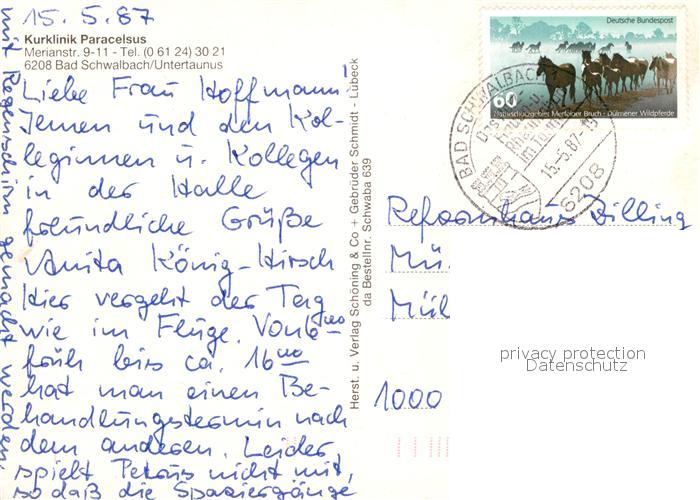 15.5.87
Kurklinik Paracelsus
Merianstr. 9-11 - Tel. (0 61 24) 30 21
6208 Bad Schwalbach/Untertaunus
Liebe Frau Hoffmann!
Ihnen und den Kol-
leginnen u. Kollegen
in der Halle
freundliche Grüße
Anita König-Hirsch
Hier vergeht der Tag
wie im Fluge. Von 6⁰⁰
früh bis ca. 16⁰⁰
hat man einen Be-
handlungstermin nach
dem anderen. Leider
spielt Petrus nicht mit,
so daß die Spaziergänge
mit Regenschirm gemacht werden.
Herst. u. Verlag Schöning & Co + Gebrüder Schmidt - Lübeck
da Bestellnr. Schwaba 639
Deutsche Bundespost
60
Naturschutzgebiet Merfelder Bruch - Dülmener Wildpferde
BAD SCHWALBACH
15.-5.87-19
6208
Reformhaus Billing
Mü.
Mül
1000
privacy protection
Datenschutz